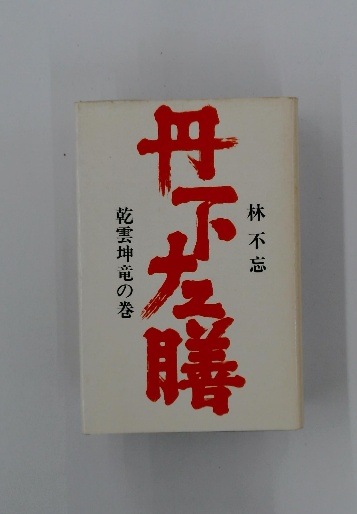 林不忘
丹下左膳
乾雲坤竜の巻